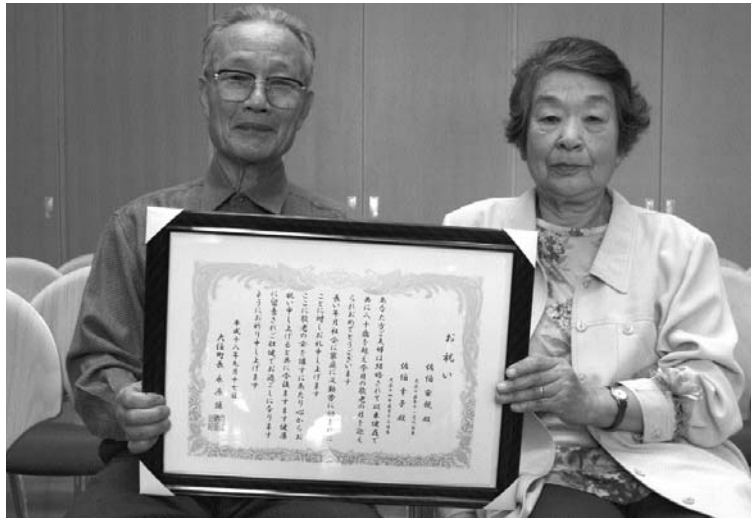 お祝い
佐伯
佐伯 幸子 殿
あなた方ご夫婦は結婚されて以来健在で
共に八十歳を超え今日の敬老の日を迎え
られおめでとうございます
長い年月社会に家庭に
ことに対しお礼申し上げます
ここに敬老の会を催すにあたり心からお
祝い申し上げると共に今後ますます健康
に留意されご壮健でお過ごしになります
ようにお祈り申し上げます
平成十八年九月十七日
町長